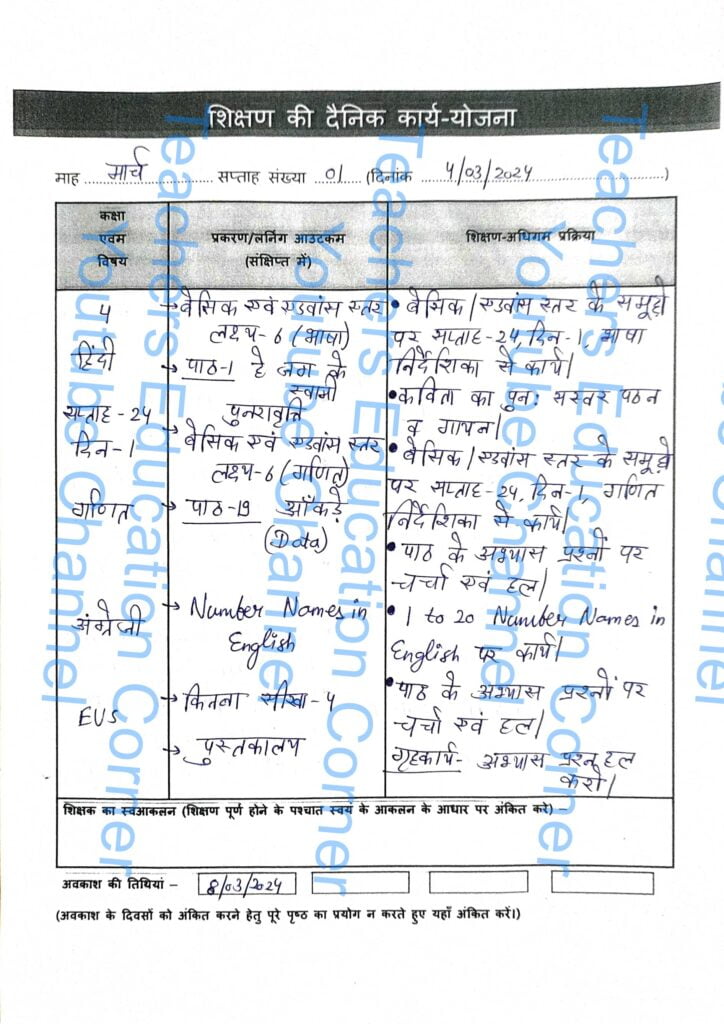 शिक्षण की दैनिक कार्य-योजना
माह मार्च सप्ताह संख्या 01 (दिनांक 4/03/2024)
कक्षा
एवम
विषय
प्रकरण/लर्निंग आउटकम
(संक्षिप्त में)
शिक्षण-अधिगम प्रक्रिया
4
हिंदी
सप्ताह - 24
दिन - 1
गणित
अंग्रेजी
EVS
→ बेसिक एवं एडवांस स्तर
लक्ष्य- 6 (भाषा)
→ पाठ-1 हे जग के
स्वामी
पुनरावृत्ति
→ बेसिक एवं एडवांस स्तर
लक्ष्य-6 (गणित)
→ पाठ-19 आँकड़े
(Data)
→ Number Names in
English
→ कितना सीखा - 4
→ पुस्तकालय
• बेसिक/एडवांस स्तर के समूहो
पर सप्ताह-24, दिन-1, भाषा
निर्देशिका से कार्य।
• कविता का पुन: सस्वर पठन
व गायन।
• बेसिक/एडवांस स्तर के समूहो
पर सप्ताह-24, दिन-1, गणित
निर्देशिका से कार्य।
• पाठ के अभ्यास प्रश्नों पर
चर्चा एवं हल।
• 1 to 20 Number Names in
English पर कार्य।
• पाठ के अभ्यास प्रश्नों पर
चर्चा एवं हल।
गृहकार्य- अभ्यास प्रश्न हल
करो।
शिक्षक का स्वआकलन (शिक्षण पूर्ण होने के पश्चात स्वयं के आकलन के आधार पर अंकित करे) –
अवकाश की तिथियां – 8/03/2024
(अवकाश के दिवसों को अंकित करने हेतु पूरे पृष्ठ का प्रयोग न करते हुए यहाँ अंकित करें।)
Teachers Education Corner
Youtube Channel
Teachers Education Corner
Youtube Channel
Teachers Education Corner
Youtube Channel